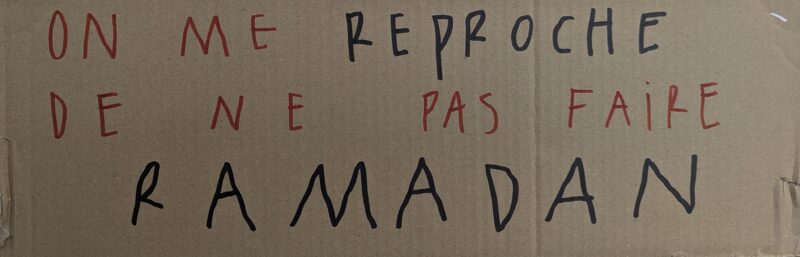 ON ME REPROCHE
DE NE PAS FAIRE
RAMADAN